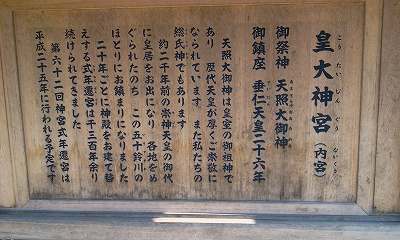 皇大神宮(内宮)
こうたいじんぐうないくう
御祭神 天照大御神
御鎮座 垂仁天皇二十六年
天照大御神は皇室の御祖神で
あり 歴代天皇が厚くご崇敬に
なられています また私たちの
総氏神でもあります
約二千年前の崇神天皇の御代
に皇居をお出になり 各地をめ
ぐられたのち この五十鈴川の
ほとりにお鎮まりになりました
二十年ごとに神殿をお建て替
えする式年遷宮は千三百年余り
続けられてきました
第六十二回神宮式年遷宮は
平成二十五年に行われる予定です